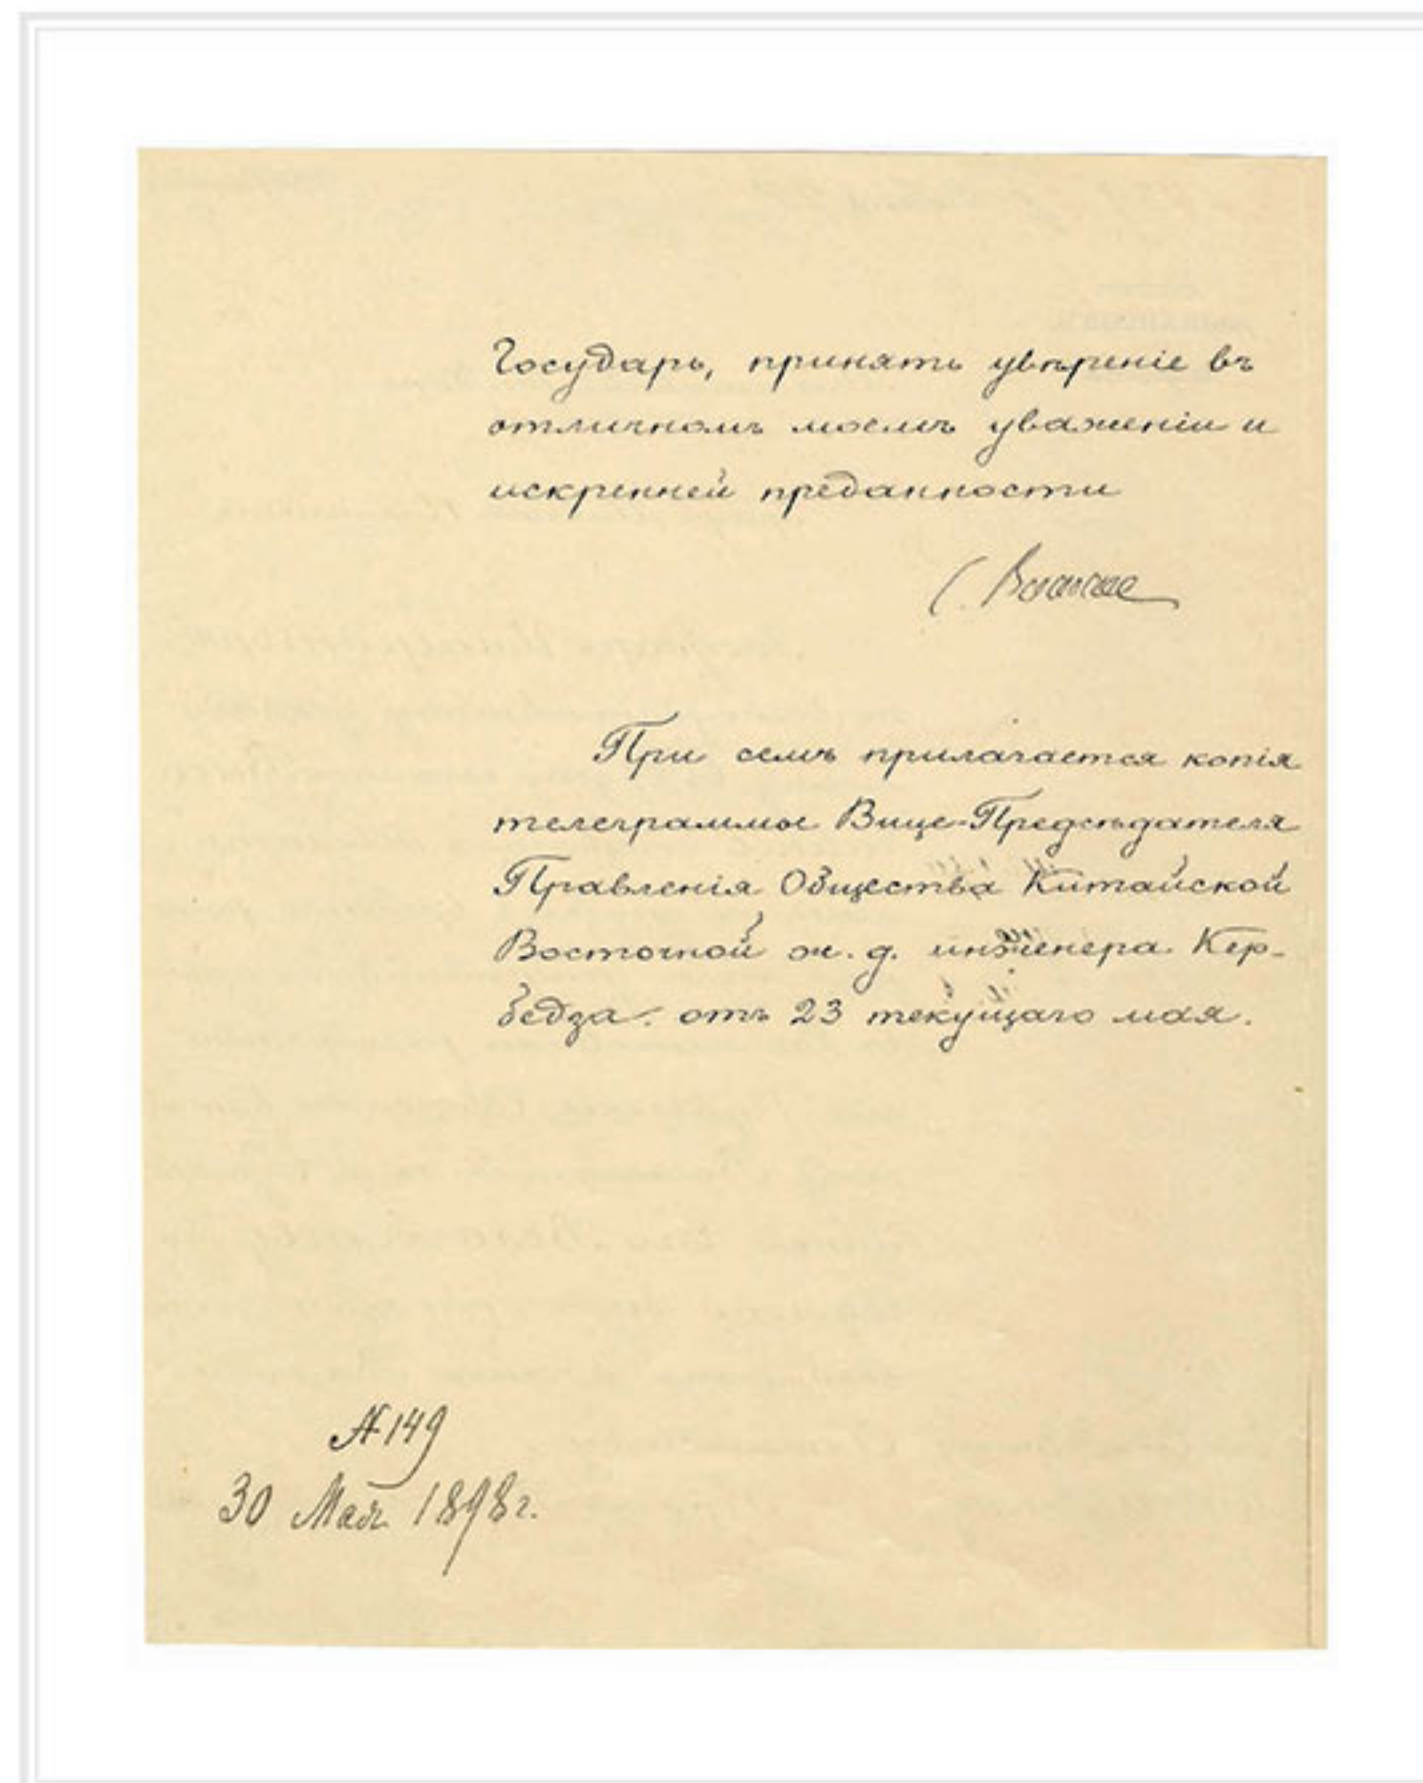 Государь, принять увѣреніе въ
отличномъ моемъ уваженіи и
искренней преданности
С. Витте
При семъ прилагается копія
телеграммы Вице-Предсѣдателя
Правленія Общества Китайской
Восточной ж. д. инженера Кер-
бедза отъ 23 текущаго мая.
№ 149
30 Мая 1898 г.